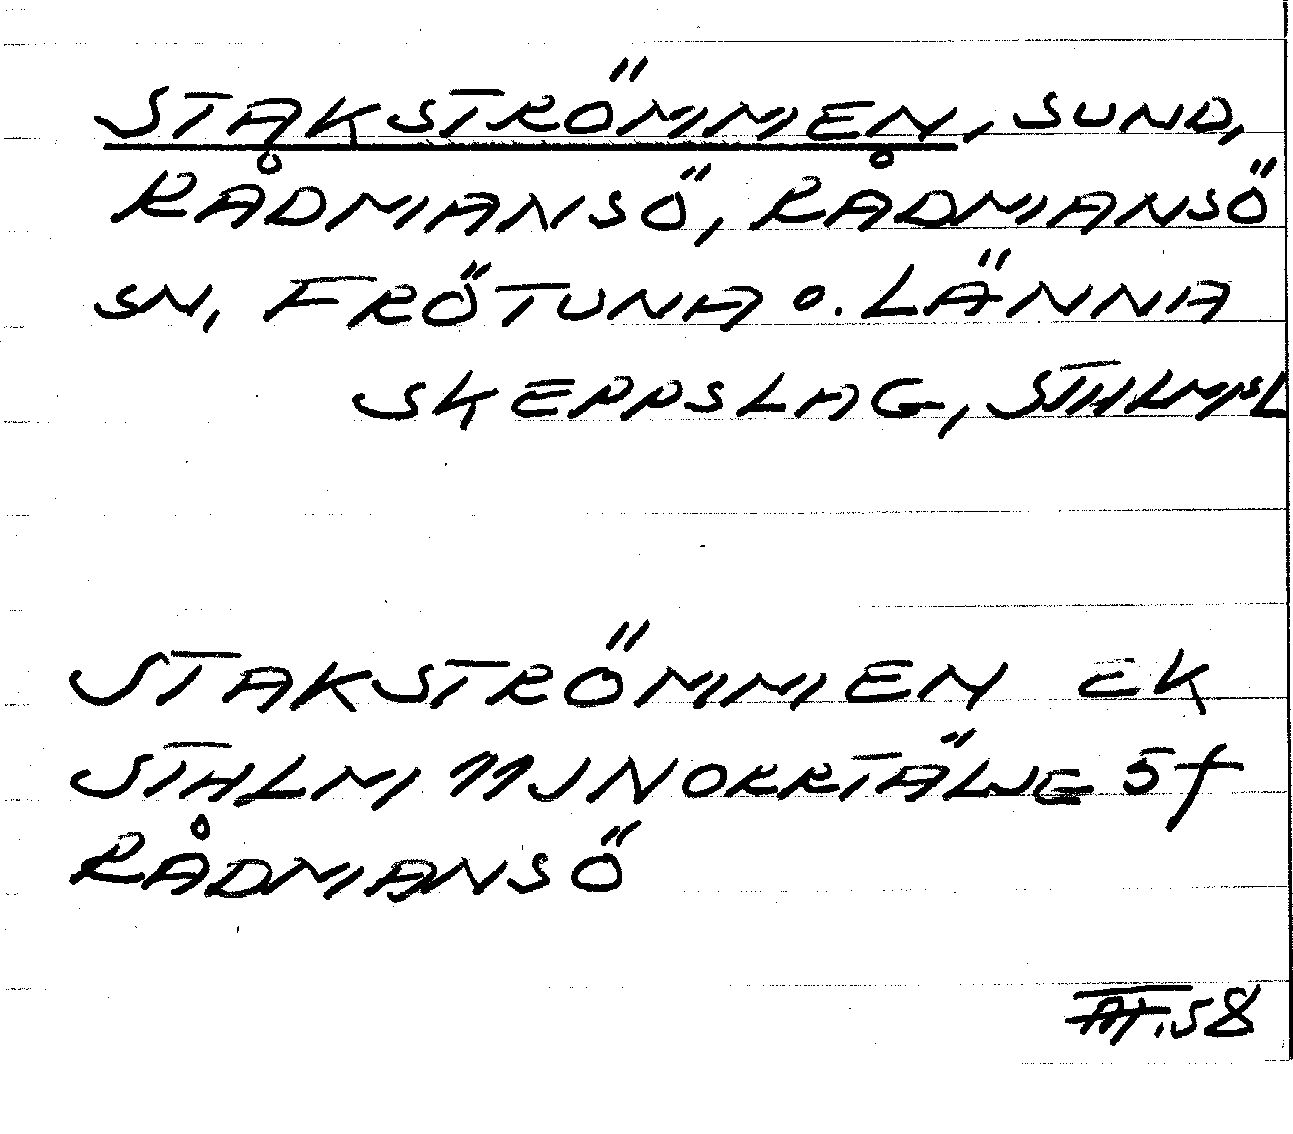 STAKSTRÖMMEN, SUND,
RÅDMANSÖ, RÅDMANSÖ
SN, FRÖTUNA O. LÄNNA
SKEPPSLAG, STHLMSL
STAKSTRÖMMEN EK
STHLM 11J NORRTÄLJE 5f
RÅDMANSÖ
58